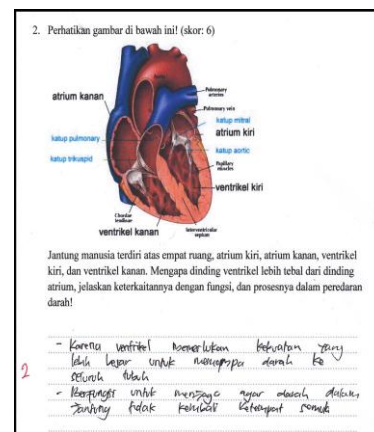 2. Perhatikan gambar di bawah ini! (skor: 6)
atrium kanan
Pulmonary arteries
Pulmonary vein
katup mitral
atrium kiri
katup pulmonary
katup aortic
katup trikuspid
Papillary muscles
ventrikel kiri
Chordae tendinae
ventrikel kanan
Interventricular septum
Jantung manusia terdiri atas empat ruang, atrium kiri, atrium kanan, ventrikel
kiri, dan ventrikel kanan. Mengapa dinding ventrikel lebih tebal dari dinding
atrium, jelaskan keterkaitannya dengan fungsi, dan prosesnya dalam peredaran
darah!
- Karena ventrikel memerlukan kekuatan yang
lebih besar untuk memompa darah ke
2 seluruh tubuh
- Berfungsi untuk menjaga agar darah dalam
Jantung tidak kembali ketempat semula